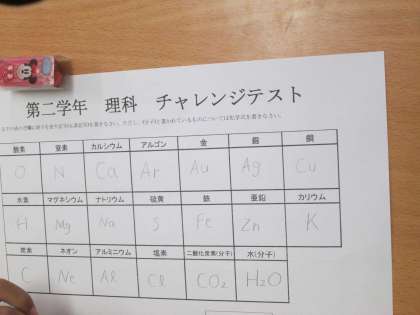 第二学年 理科 チャレンジテスト
酸素 窒素 カルシウム アルゴン 金 銀 銅
O N Ca Ar Au Ag Cu
水素 マグネシウム ナトリウム 硫黄 鉄 亜鉛 カリウム
H Mg Na S Fe Zn K
炭素 ネオン アルミニウム 塩素 二酸化炭素(分子) 水(分子)
C Ne Al Cl CO₂ H₂O